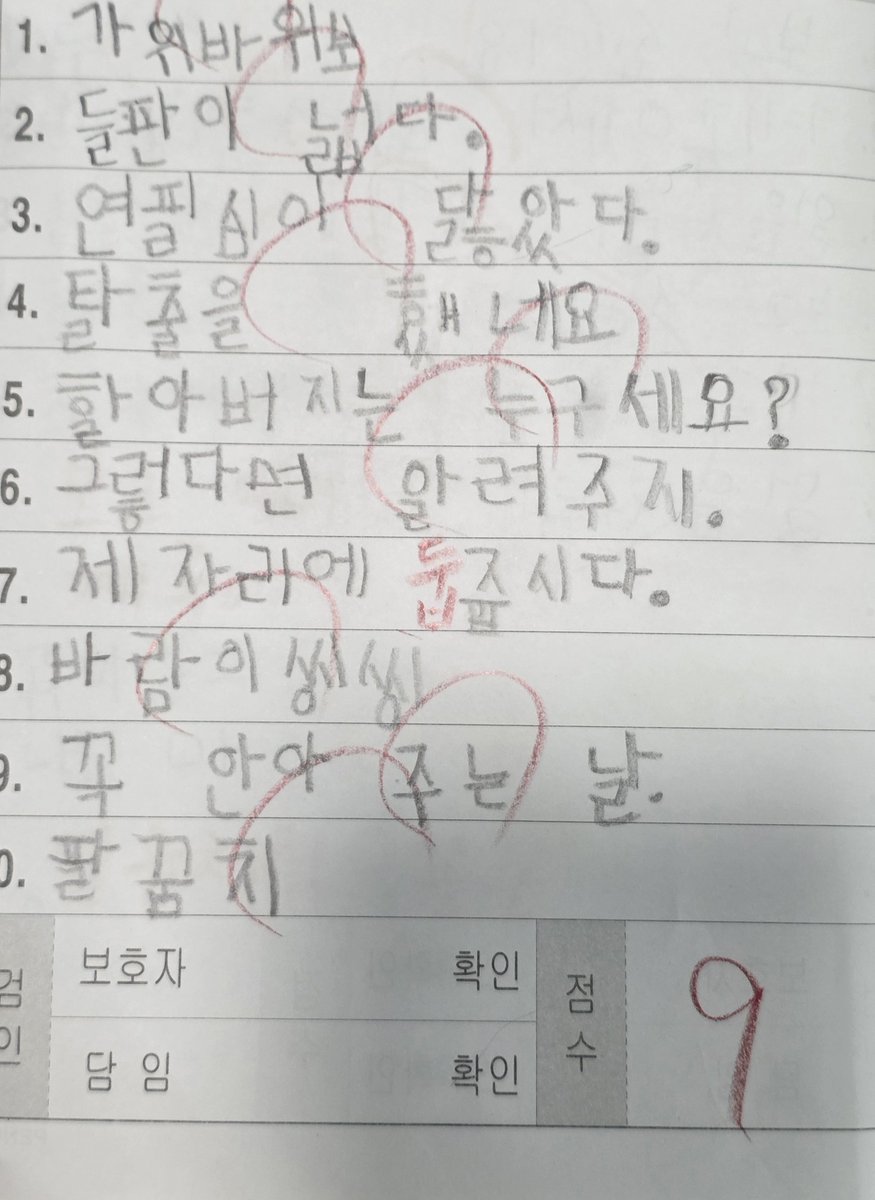 1. 가위바위보
2. 들판이 넓다.
3. 연필심이 닳았다.
4. 탈출을 했네요
5. 할아버지는 누구세요?
6. 그렇다면 알려주지.
7. 제자리에 둡줍시다.
8. 바람이 씽씽
9. 꼭 안아 주는 날.
0. 팔꿈치
검인
보호자 확인
담임 확인
점수
9